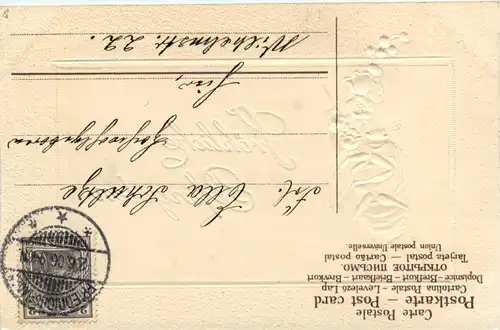 Carte Postale
Postkarte — Post card
Cartolina Postale – Levelező Lap
Dopisnice – Brefkort – Briefkaart – Brevkort
ОТКРЫТОЕ ПИСЬМО.
Tarjeta postal — Cartão postal
Union postale Universelle.
Frl. Ella Schultze
Hochwohlgeboren
hier,
Wilhelmstr. 22.
Fröhliche
2
2